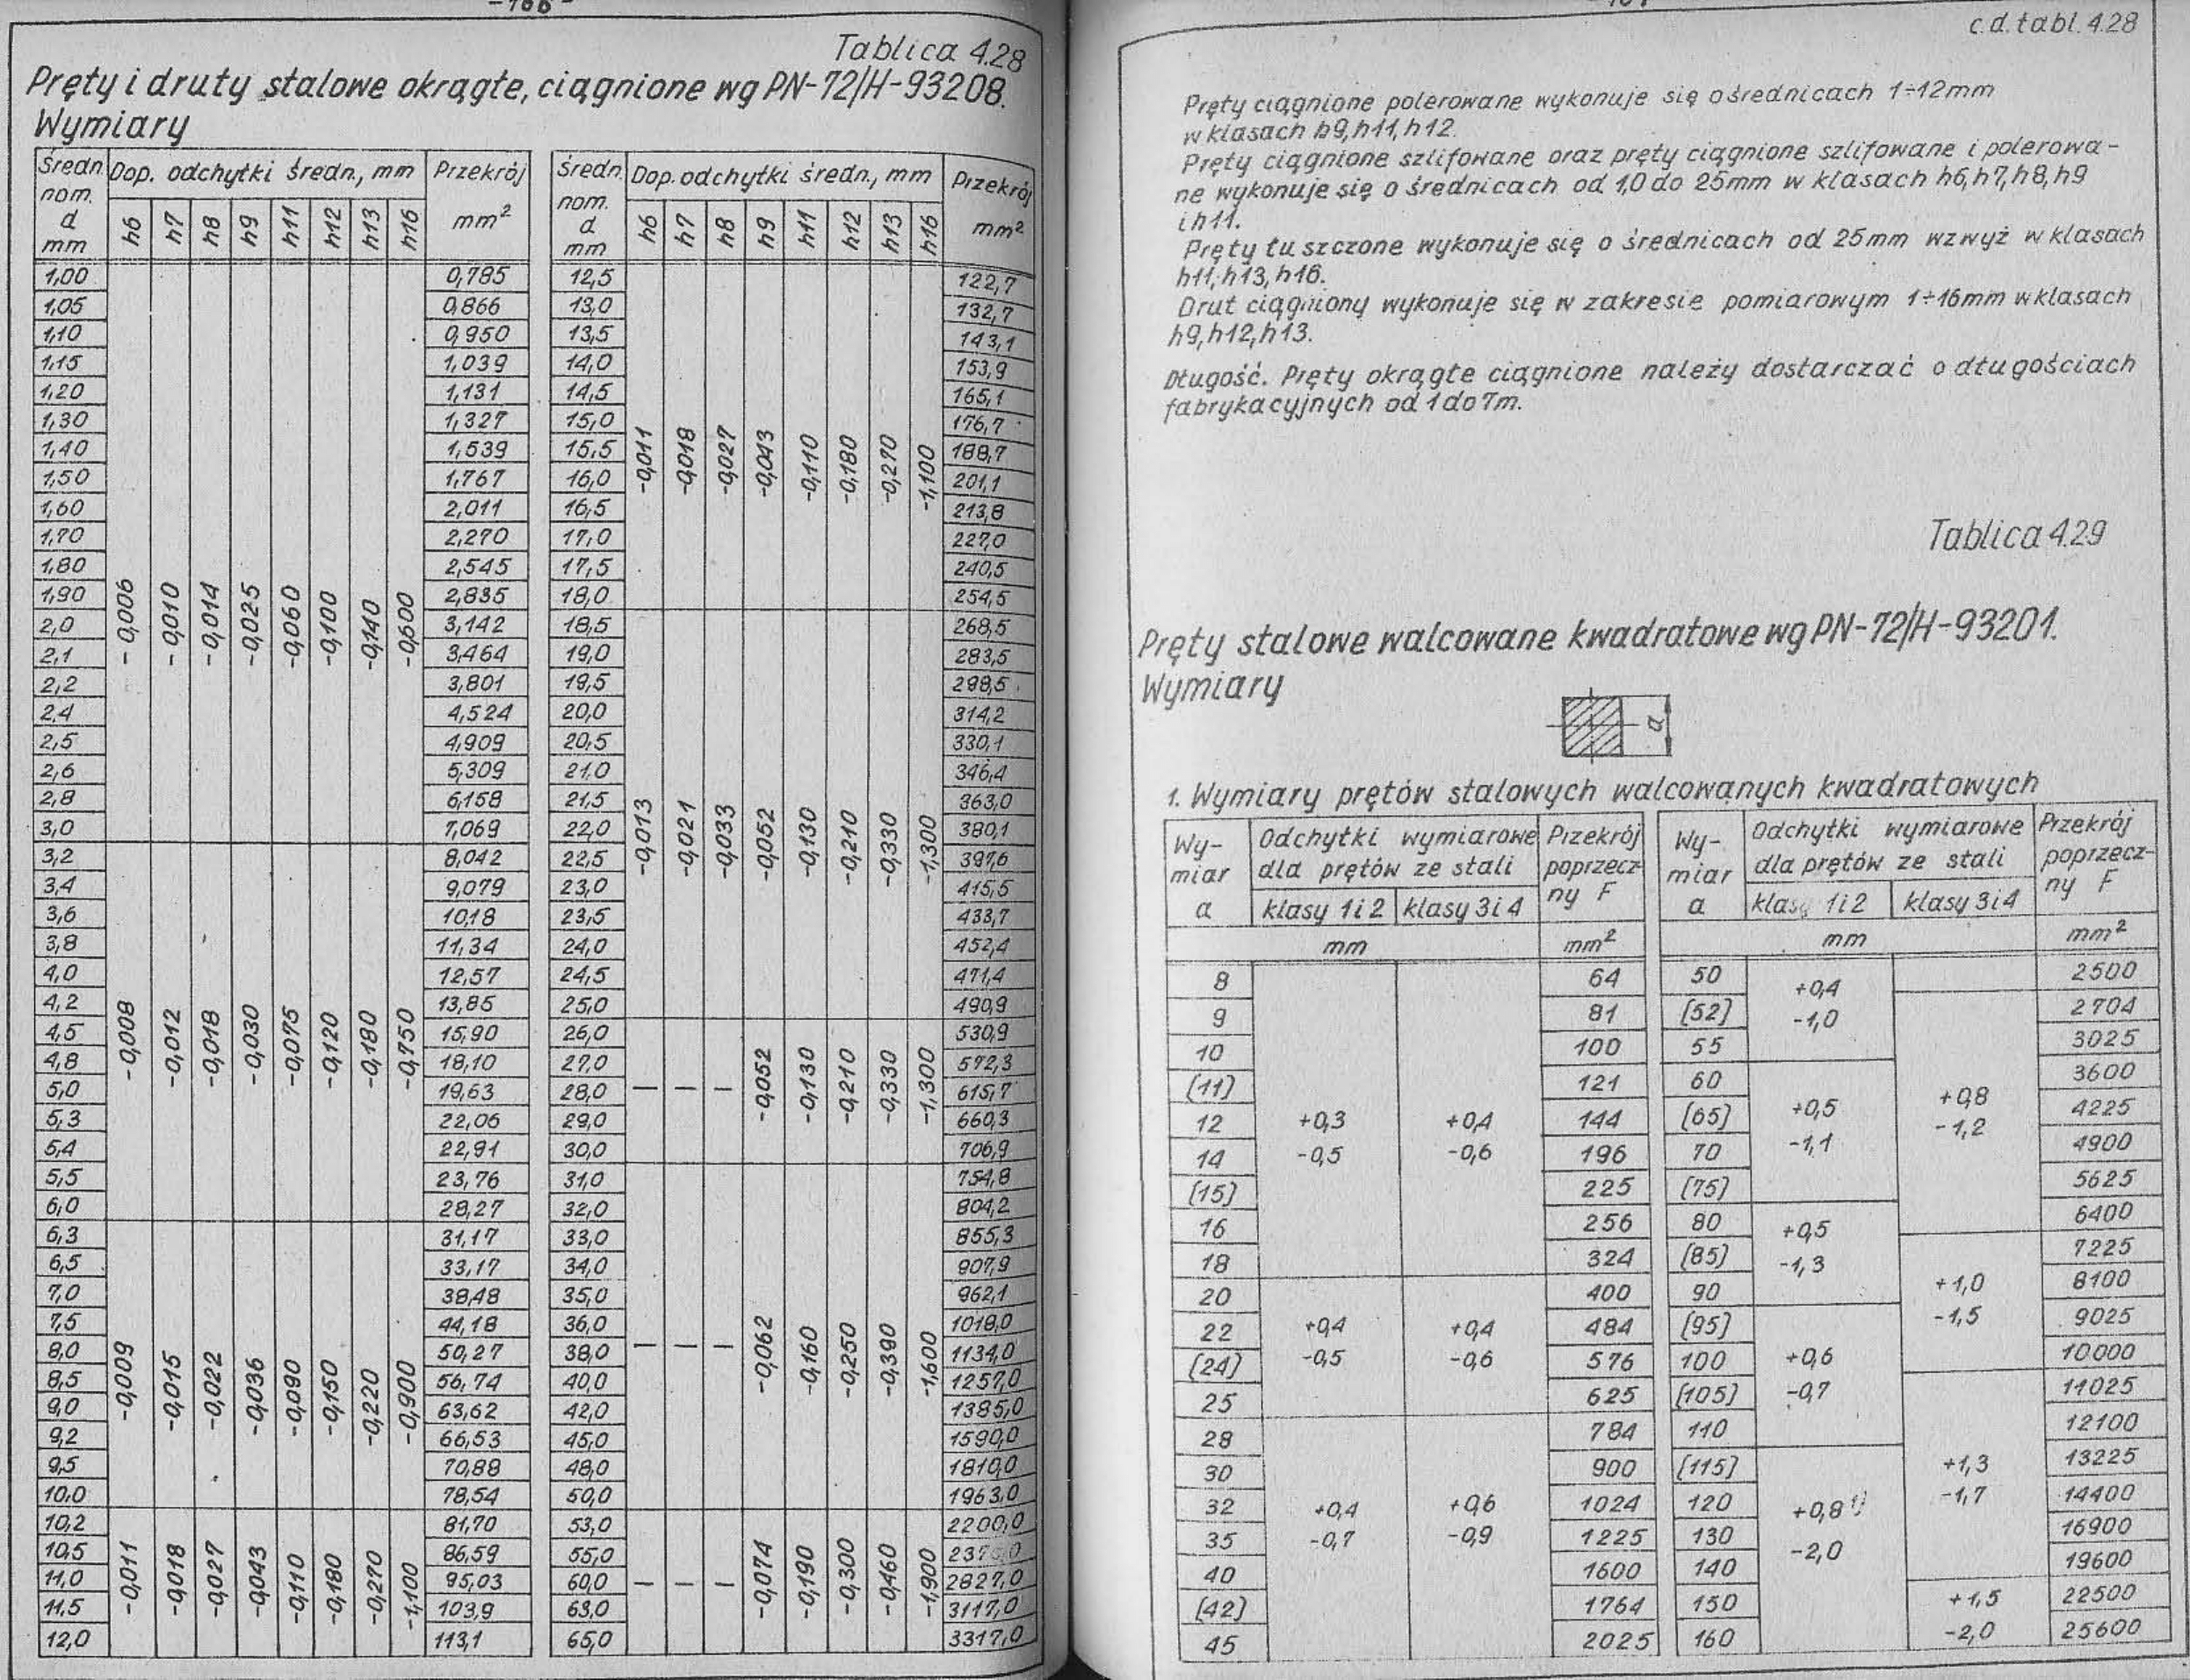 -166-
Tablica 4.28
Pręty i druty stalowe okrągłe, ciągnione wg PN-72/H-93208.
Wymiary
Średn. nom. d mm | Dop. odchyłki średn., mm | Przekrój mm²
h6 h7 h8 h9 h11 h12 h13 h16
1,00 0,785
1,05 0,866
1,10 0,950
1,15 1,039
1,20 1,131
1,30 1,327
1,40 1,539
1,50 1,767
1,60 2,011
1,70 2,270
1,80 2,545
1,90 2,835
2,0 3,142
2,1 3,464
2,2 3,801
2,4 4,524
2,5 4,909
2,6 5,309
2,8 6,158
3,0 7,069
-0,006 -0,010 -0,014 -0,025 -0,060 -0,100 -0,140 -0,600
3,2 8,042
3,4 9,079
3,6 10,18
3,8 11,34
4,0 12,57
4,2 13,85
4,5 15,90
4,8 18,10
5,0 19,63
5,3 22,06
5,4 22,91
5,5 23,76
6,0 28,27
-0,008 -0,012 -0,018 -0,030 -0,075 -0,120 -0,180 -0,750
6,3 31,17
6,5 33,17
7,0 38,48
7,5 44,18
8,0 50,27
8,5 56,74
9,0 63,62
9,2 66,53
9,5 70,88
10,0 78,54
-0,009 -0,015 -0,022 -0,036 -0,090 -0,150 -0,220 -0,900
10,2 81,70
10,5 86,59
11,0 95,03
11,5 103,9
12,0 113,1
-0,011 -0,018 -0,027 -0,043 -0,110 -0,180 -0,270 -1,100
Średn. nom. d mm | Dop. odchyłki średn., mm | Przekrój mm²
h6 h7 h8 h9 h11 h12 h13 h16
12,5 122,7
13,0 132,7
13,5 143,1
14,0 153,9
14,5 165,1
15,0 176,7
15,5 188,7
16,0 201,1
16,5 213,8
17,0 227,0
17,5 240,5
18,0 254,5
-0,011 -0,018 -0,027 -0,043 -0,110 -0,180 -0,270 -1,100
18,5 268,5
19,0 283,5
19,5 298,5
20,0 314,2
20,5 330,1
21,0 346,4
21,5 363,0
22,0 380,1
22,5 397,6
23,0 415,5
23,5 433,7
24,0 452,4
24,5 471,4
25,0 490,9
-0,013 -0,021 -0,033 -0,052 -0,130 -0,210 -0,330 -1,300
26,0 530,9
27,0 572,3
28,0 615,7
29,0 660,3
30,0 706,9
— — — -0,052 -0,130 -0,210 -0,330 -1,300
31,0 754,8
32,0 804,2
33,0 855,3
34,0 907,9
35,0 962,1
36,0 1018,0
38,0 1134,0
40,0 1257,0
42,0 1385,0
45,0 1590,0
48,0 1810,0
50,0 1963,0
— — — -0,062 -0,160 -0,250 -0,390 -1,600
53,0 2200,0
55,0
60,0 2827,0
63,0 3117,0
65,0 3317,0
— — — -0,074 -0,190 -0,300 -0,460 -1,900
c.d. tabl. 4.28
Pręty ciągnione polerowane wykonuje się o średnicach 1÷12mm
w klasach h9, h11, h12.
Pręty ciągnione szlifowane oraz pręty ciągnione szlifowane i polerowa-
ne wykonuje się o średnicach od 1,0 do 25mm w klasach h6, h7, h8, h9
i h11.
Pręty łuszczone wykonuje się o średnicach od 25mm wzwyż w klasach
h11, h13, h16.
Drut ciągniony wykonuje się w zakresie pomiarowym 1÷16mm w klasach
h9, h12, h13.
Długość. Pręty okrągłe ciągnione należy dostarczać o długościach
fabrykacyjnych od 1 do 7m.
Tablica 4.29
Pręty stalowe walcowane kwadratowe wg PN-72/H-93201.
Wymiary
a
1. Wymiary prętów stalowych walcowanych kwadratowych
Wy-miar a | Odchyłki wymiarowe dla prętów ze stali | Przekrój poprzecz-ny F
klasy 1i2 klasy 3i4
mm mm²
8 64
9 81
10 100
(11) 121
12 144
14 196
(15) 225
16 256
18 324
+0,3 -0,5 +0,4 -0,6
20 400
22 484
(24) 576
25 625
+0,4 -0,5 +0,4 -0,6
28 784
30 900
32 1024
35 1225
40 1600
(42) 1764
45 2025
+0,4 -0,7 +0,6 -0,9
Wy-miar a | Odchyłki wymiarowe dla prętów ze stali | Przekrój poprzecz-ny F
klasy 1i2 klasy 3i4
mm mm²
50 2500
(52) 2704
55 3025
+0,4 -1,0
60 3600
(65) 4225
70 4900
(75) 5625
+0,5 -1,1
+0,8 -1,2
80 6400
(85) 7225
90 8100
+0,5 -1,3
(95) 9025
+1,0 -1,5
100 10000
(105) 11025
110 12100
+0,6 -0,7
(115) 13225
120 14400
130 16900
140 19600
+1,3 -1,7
150 22500
160 25600
+0,8¹⁾ -2,0
+1,5 -2,0